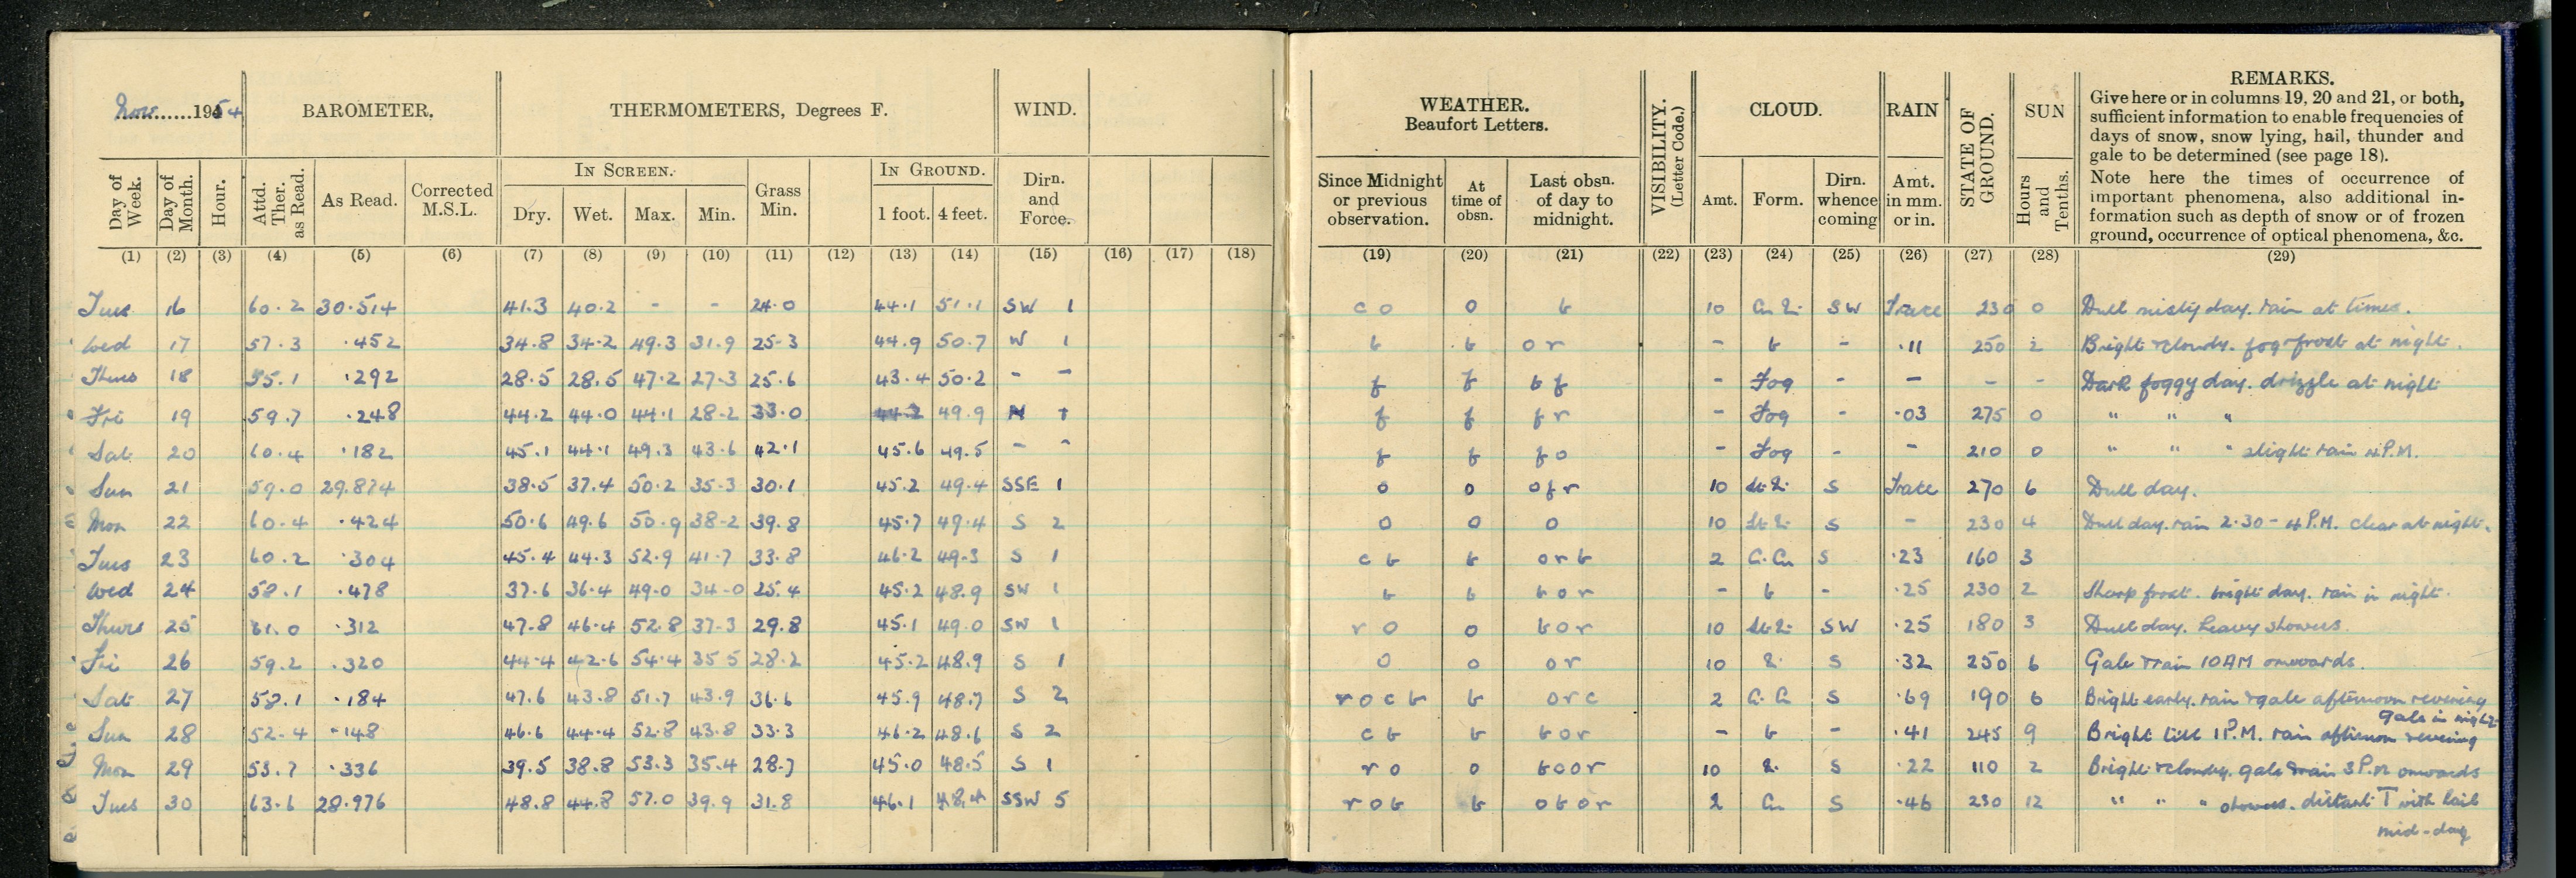 Nov......1954 BAROMETER. THERMOMETERS, Degrees F. WIND. WEATHER. Beaufort Letters. VISIBILITY. (Letter Code.) CLOUD. RAIN STATE OF GROUND. SUN REMARKS.
Give here or in columns 19, 20 and 21, or both,
sufficient information to enable frequencies of
days of snow, snow lying, hail, thunder and
gale to be determined (see page 18).
Note here the times of occurrence of
important phenomena, also additional in-
formation such as depth of snow or of frozen
ground, occurrence of optical phenomena, &c.
Day of Week. Day of Month. Hour. Attd. Ther. as Read. As Read. Corrected M.S.L. IN SCREEN. Dry. Wet. Max. Min. Grass Min. IN GROUND. 1 foot. 4 feet. Dirn. and Force. Since Midnight or previous observation. At time of obsn. Last obsn. of day to midnight. Amt. Form. Dirn. whence coming Amt. in mm. or in. Hours and Tenths.
(1) (2) (3) (4) (5) (6) (7) (8) (9) (10) (11) (12) (13) (14) (15) (16) (17) (18) (19) (20) (21) (22) (23) (24) (25) (26) (27) (28) (29)
Tues 16 60.2 30.514 41.3 40.2 - - 24.0 44.1 51.1 SW 1 c o o b 10 SW Trace 230 0 Dull misty day. rain at times.
Wed 17 57.3 .452 34.8 34.2 49.3 31.9 25.3 44.9 50.7 W 1 b b o r - b - .11 250 2 Bright & cloudy. fog & frost at night.
Thurs 18 55.1 .292 28.5 28.5 47.2 27.3 25.6 43.4 50.2 - - f f b f - Fog - - - - Dark foggy day. drizzle at night
Fri 19 59.7 .248 44.2 44.0 44.1 28.2 33.0 44.2 49.9 N 1 f f f r - Fog - .03 275 0 " " "
Sat 20 60.4 .182 45.1 44.1 49.3 43.6 42.1 45.6 49.5 - - f f f o - Fog - - 210 0 " " " slight rain 4 P.M.
Sun 21 59.0 29.874 38.5 37.4 50.2 35.3 30.1 45.2 49.4 SSE 1 o o o f r 10 S Trace 270 6 Dull day.
Mon 22 60.4 .424 50.6 49.6 50.9 38.2 39.8 45.7 49.4 S 2 o o o 10 S - 230 4 Dull day. rain 2.30 - 4 P.M. clear at night.
Tues 23 60.2 .304 45.4 44.3 52.9 41.7 33.8 46.2 49.3 S 1 c b b o r b 2 C.Cu S .23 160 3
Wed 24 58.1 .478 37.6 36.4 49.0 34.0 25.4 45.2 48.9 SW 1 b b b o r - b - .25 230 2 Sharp frost. bright day. rain in night.
Thurs 25 61.0 .312 47.8 46.4 52.8 37.3 29.8 45.1 49.0 SW 1 r o o b o r 10 SW .25 180 3 Dull day. heavy showers.
Fri 26 59.2 .320 44.4 42.6 54.4 35.5 28.2 45.2 48.9 S 1 o o o r 10 S .32 250 6 Gale & rain 10 AM onwards.
Sat 27 58.1 .184 47.6 43.8 51.7 43.9 36.6 45.9 48.7 S 2 r o c b b o r c 2 S .69 190 6 Bright early. rain & gale afternoon & evening
gale in night
Sun 28 52.4 .148 46.6 44.4 52.8 43.8 33.3 46.2 48.6 S 2 c b b b o r - b - .41 245 9 Bright till 1 P.M. rain afternoon & evening
Mon 29 53.7 .336 39.5 38.8 53.3 35.4 28.7 45.0 48.5 S 1 r o o b o o r 10 S .22 110 2 Bright & cloudy. gale & rain 3 P.M onwards
Tues 30 63.6 28.976 48.8 44.8 57.0 39.9 31.8 46.1 48.4 SSW 5 r o b b o b o r 2 Cu S .46 230 12 " " " showers. distant T with hail
mid-day